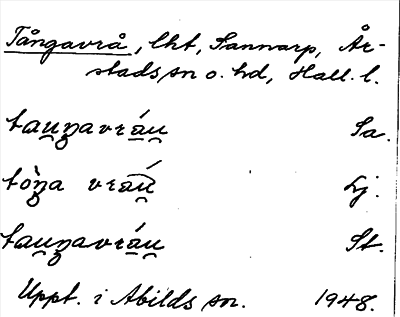 Tångavrå, lht, Sannarp, År-
stads sn o. hd, Hall. l.
tau̯ŋavráu̯ Sa.
tòŋa vráu̯ Lj.
tau̯ŋavráu̯ St.
Uppt. i Abilds sn. 1948.